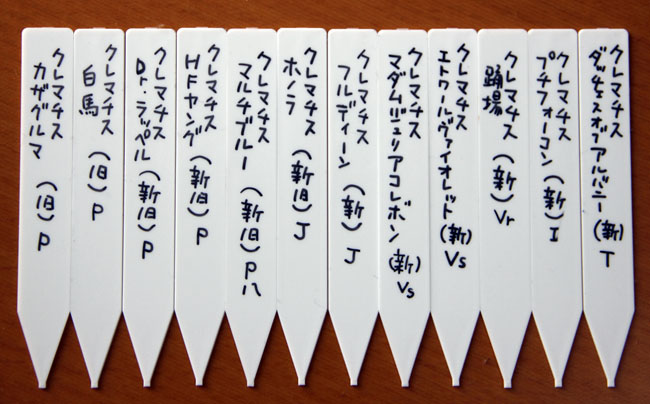 クレマチス
ダッチェスオブアルバニー (新) T
クレマチス
プチフォーコン (新) I
クレマチス
踊場 (新) Vr
クレマチス
エトワールヴァイオレット (新) Vs
クレマチス
マダムジュリアコレボン (新) Vs
クレマチス
フルディーン (新) J
クレマチス
ホノラ (新旧) J
クレマチス
マルチブルー (新旧) P 八
クレマチス
HFヤング (新旧) P
クレマチス
Dr.ラッペル (新旧) P
クレマチス
白馬 (旧) P
クレマチス
カザグルマ (旧) P